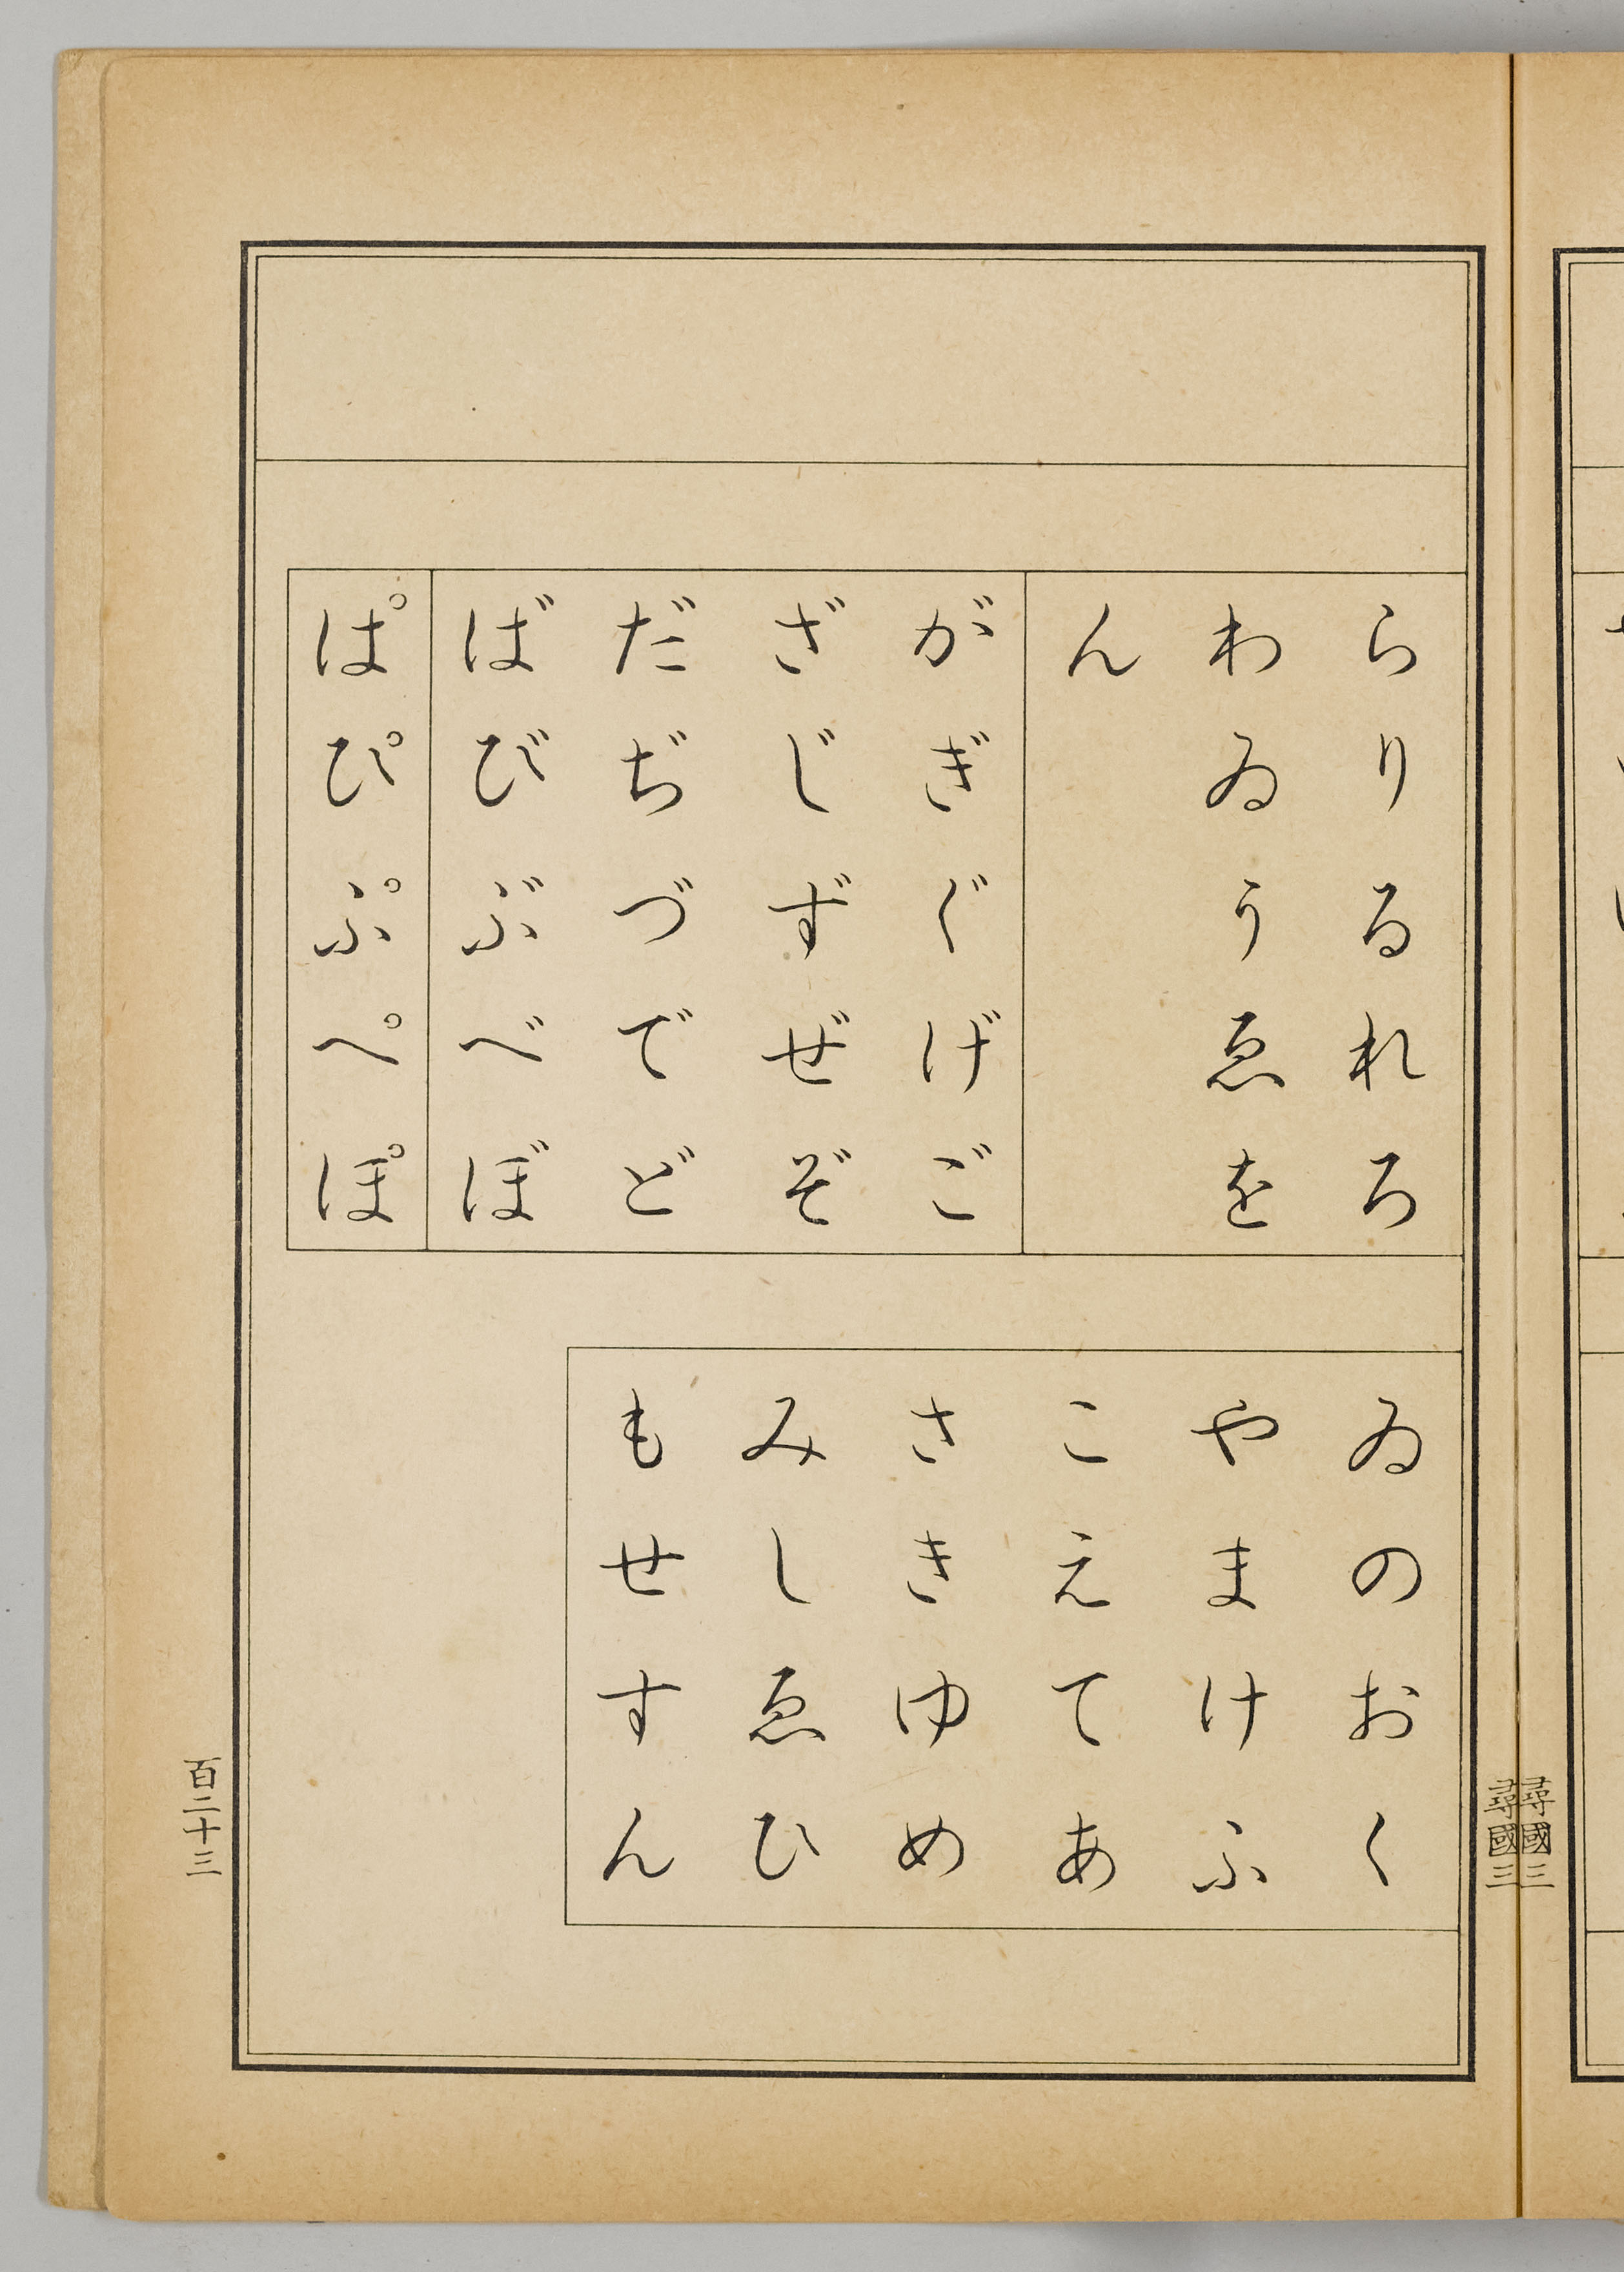 らりるれろ
わゐうゑを
ん
がぎぐげご
ざじずぜぞ
だぢづでど
ばびぶべぼ
ぱぴぷぺぽ
ゐのおく
やまけふ
こえてあ
さきゆめ
みしゑひ
もせすん
百二十三
尋國三
尋國三